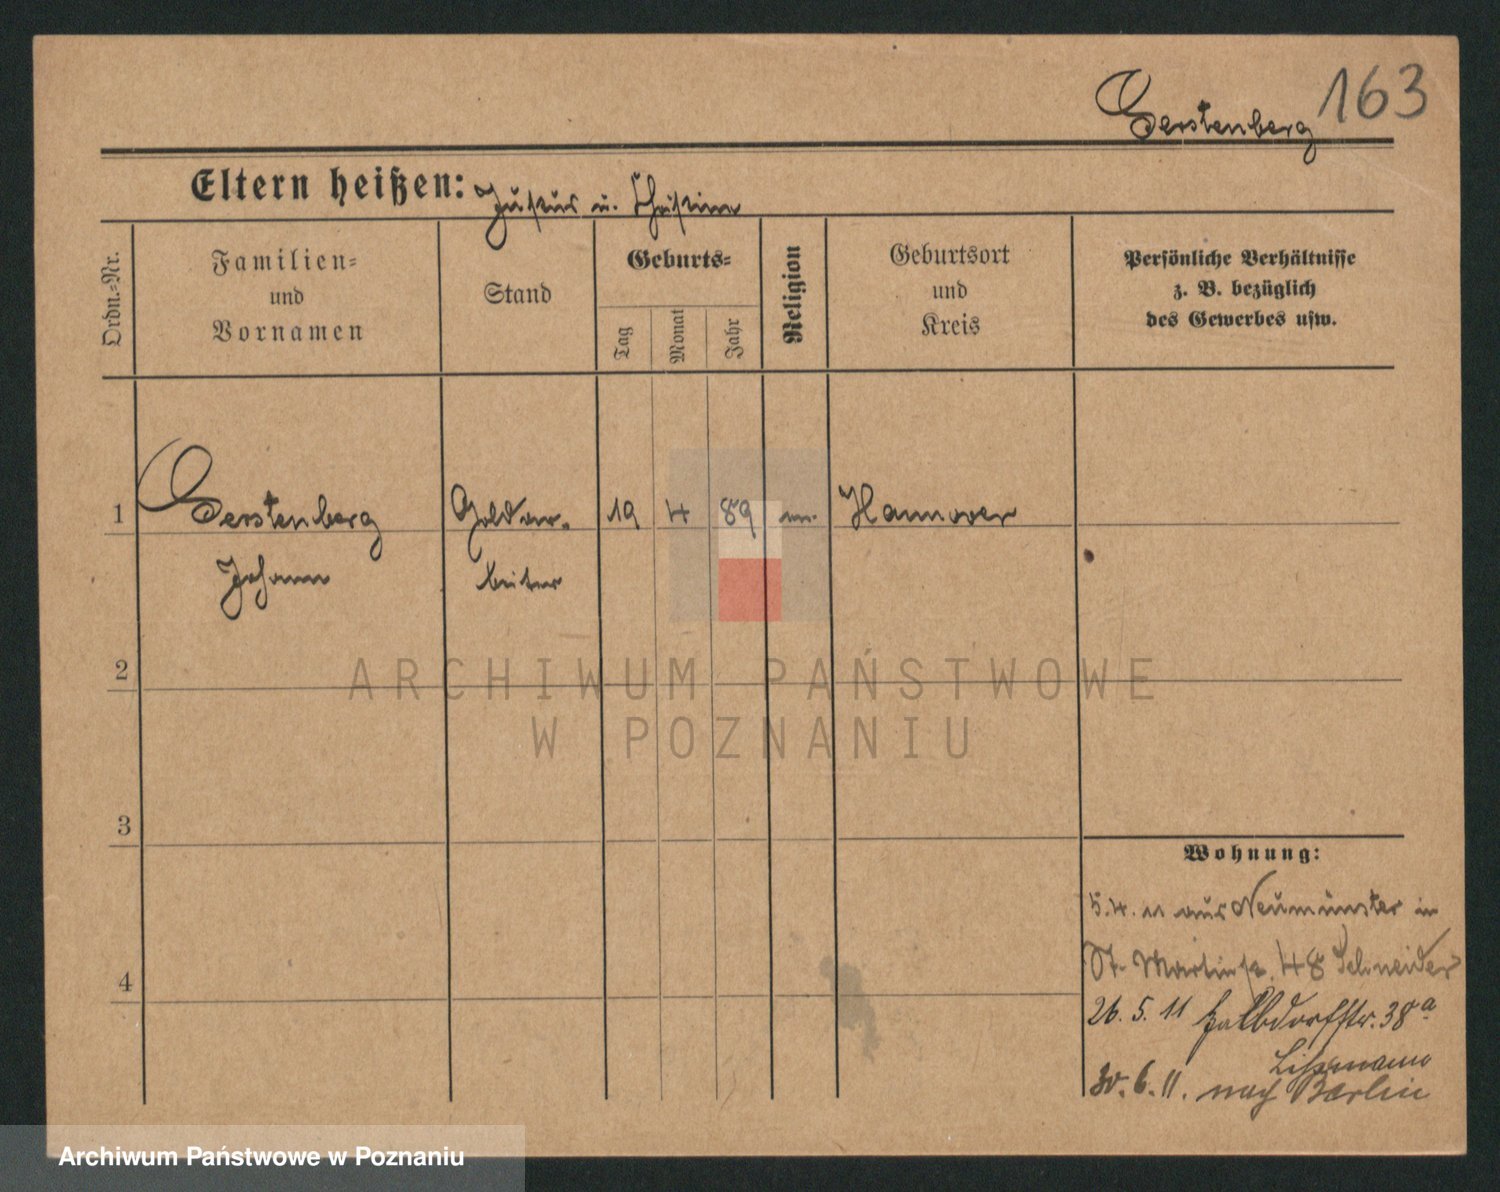 Gerstenberg 163
Eltern heißen: Justus u. Christine
Ordn.-Nr.
Familien-
und
Vornamen
Stand
Geburts-
Tag
Monat
Jahr
Religion
Geburtsort
und
Kreis
Persönliche Verhältnisse
z. B. bezüglich
des Gewerbes usw.
1 Gerstenberg Goldar- 19 4 89 Hannover
Johann beiter
2
ARCHIWUM PAŃSTWOWE
W POZNANIU
3
Wohnung:
5.4.11 aus Neumünster in
St. Martinstr. 48 Schneider
4
26.5.11 38a
30.6.11. nach Berlin
Archiwum Państwowe w Poznaniu